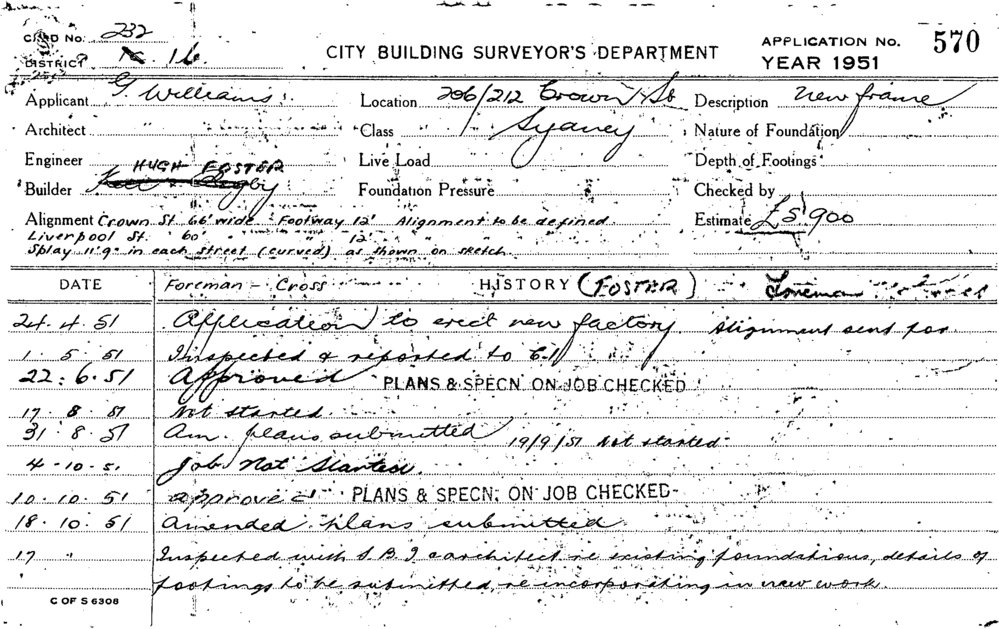 CARD No. 232
DISTRICT 16.
CITY BUILDING SURVEYOR'S DEPARTMENT
APPLICATION No. 570
YEAR 1951
Applicant G. Williams.
Location 206/212 Crown St
Description New frame
Architect
Class Sydney
Nature of Foundation
Engineer
Live Load
Depth of Footings
HUGH FOSTER
Builder
Foundation Pressure
Checked by
Alignment Crown St. 66' wide Footway 12' Alignment to be defined
Estimate £5,900
Liverpool St. 60' " " 12' " " "
Splay 11'9" in each street (curved) as shown on sketch.
DATE Foreman - Cross HISTORY (FOSTER) Foreman
24.4.51 Application to erect new factory Alignment sent for
1.5.51 Inspected & reported to
22.6.51 Approved PLANS & SPECN. ON JOB CHECKED
17.8.51 Not started.
31.8.51 Am. plans submitted 19/9/51 Not started
4.10.51 Job Not Started.
10.10.51 approved PLANS & SPECN. ON JOB CHECKED
18.10.51 Amended plans submitted
17 " Inspected with architect re existing foundations, details of
footings to be submitted, re incorporating in new work.
C OF S 6308